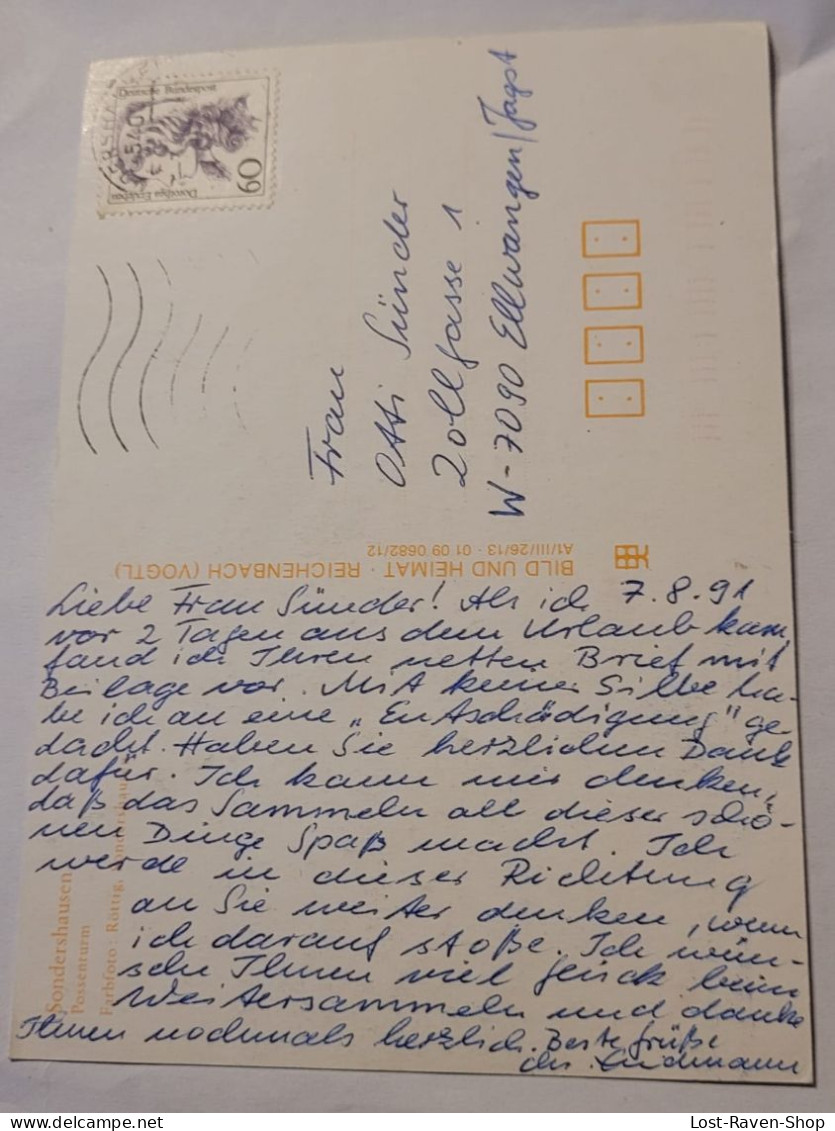 Deutsche Bundespost
60
Dorothea Erxleben
Frau
Otti Sünder
Zollgasse 1
W-7090 Ellwangen/Jagst
BILD UND HEIMAT · REICHENBACH (VOGTL)
A1/III/26/13 · 01 09 0682/12
Liebe Frau Sünder! Als ich 7.8.91
vor 2 Tagen aus dem Urlaub kam,
fand ich Ihren netten Brief mit
Beilage vor. Mit keiner Silbe ha-
be ich an eine „Entschädigung" ge-
dacht. Haben Sie herzlichen Dank
dafür. Ich kann mir denken,
daß das Sammeln all dieser schö-
nen Dinge Spaß macht. Ich
werde in dieser Richtung
an Sie weiter denken, wenn
ich darauf stoße. Ich wün-
sche Ihnen viel Glück beim
Weitersammeln und danke
Ihnen nochmals herzlich. Beste Grüße
Sondershausen
Possenturm
Farbfoto: Röttig, Sondershau
Lost-Raven-Shop